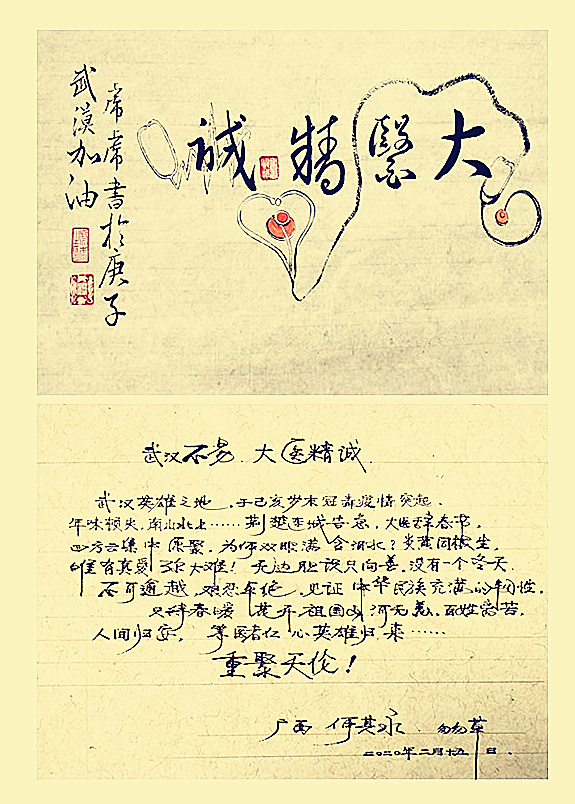 大醫精誠
常虎書於庚子
武漢加油
武汉不易 大医精诚
武汉英雄之地，于己亥岁末冠毒疫情突起，
年味顿失，南山北上……荆楚连城告急，大医辞春节，
四方云集中愿聚，为何双眼满含泪水？炎黄同根生，
唯有真爱 到大难！无边胆识只向善，没有一个冬天
不可逾越，见证中华民族充满的韧性。
只待春暖花开，祖国山河无恙，百姓安苦，
人间归安，等医者仁心英雄归来……
重聚天伦！
广西 何其永 匆匆草
二〇二〇年二月十五日.